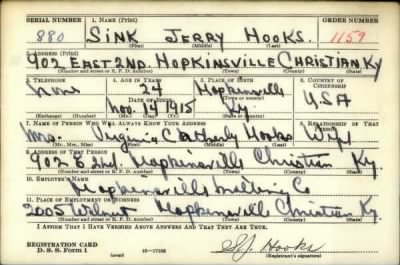 SERIAL NUMBER 1. NAME (Print) ORDER NUMBER
880 SINK JERRY HOOKS. 1159
(First) (Middle) (Last)
2. ADDRESS (Print)
902 EAST 2ND. HOPKINSVILLE CHRISTIAN KY
(Number and street or R. F. D. number) (Town) (County) (State)
3. TELEPHONE 4. AGE IN YEARS 5. PLACE OF BIRTH 6. COUNTRY OF CITIZENSHIP
None 24 Hopkinsville
DATE OF BIRTH (Town or county)
Nov. 14 1915 Ky USA
(Exchange) (Number) (Mo.) (Day) (Yr.) (State or country)
7. NAME OF PERSON WHO WILL ALWAYS KNOW YOUR ADDRESS 8. RELATIONSHIP OF THAT PERSON
Mrs. Virginia Hooks Wife
(Mr., Mrs., Miss) (First) (Middle) (Last)
9. ADDRESS OF THAT PERSON
902 E 2nd. Hopkinsville Christian Ky.
(Number and street or R. F. D. number) (Town) (County) (State)
10. EMPLOYER'S NAME
Hopkinsville Milling Co
11. PLACE OF EMPLOYMENT OR BUSINESS
Hopkinsville Christian Ky.
(Number and street or R. F. D. number) (Town) (County) (State)
I AFFIRM THAT I HAVE VERIFIED ABOVE ANSWERS AND THAT THEY ARE TRUE.
REGISTRATION CARD
D. S. S. Form 1 (over) S.J. Hooks
(Registrant's signature)